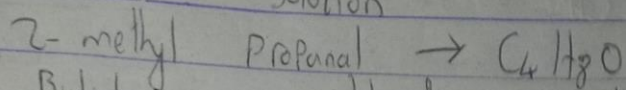 2- methyl Propanal → C4H8O